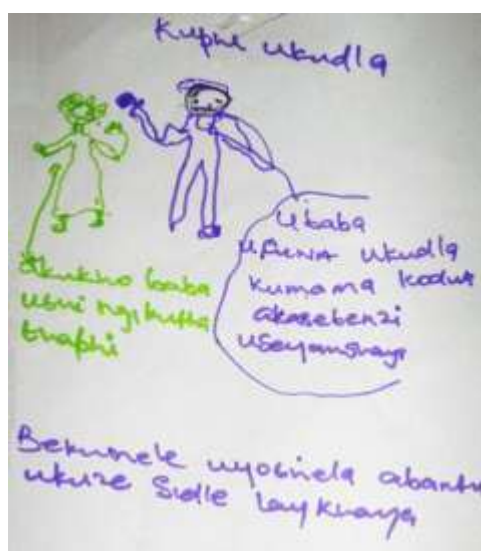 Kuphi ukudla
Ubaba
uFUNA ukudla
kumama kodwa
akasebenzi
useyamshaya
Akukho baba
uthi ngikutha
thaphi
Bekumele uyosinela abantu
ukuze Sidle lay Khaya